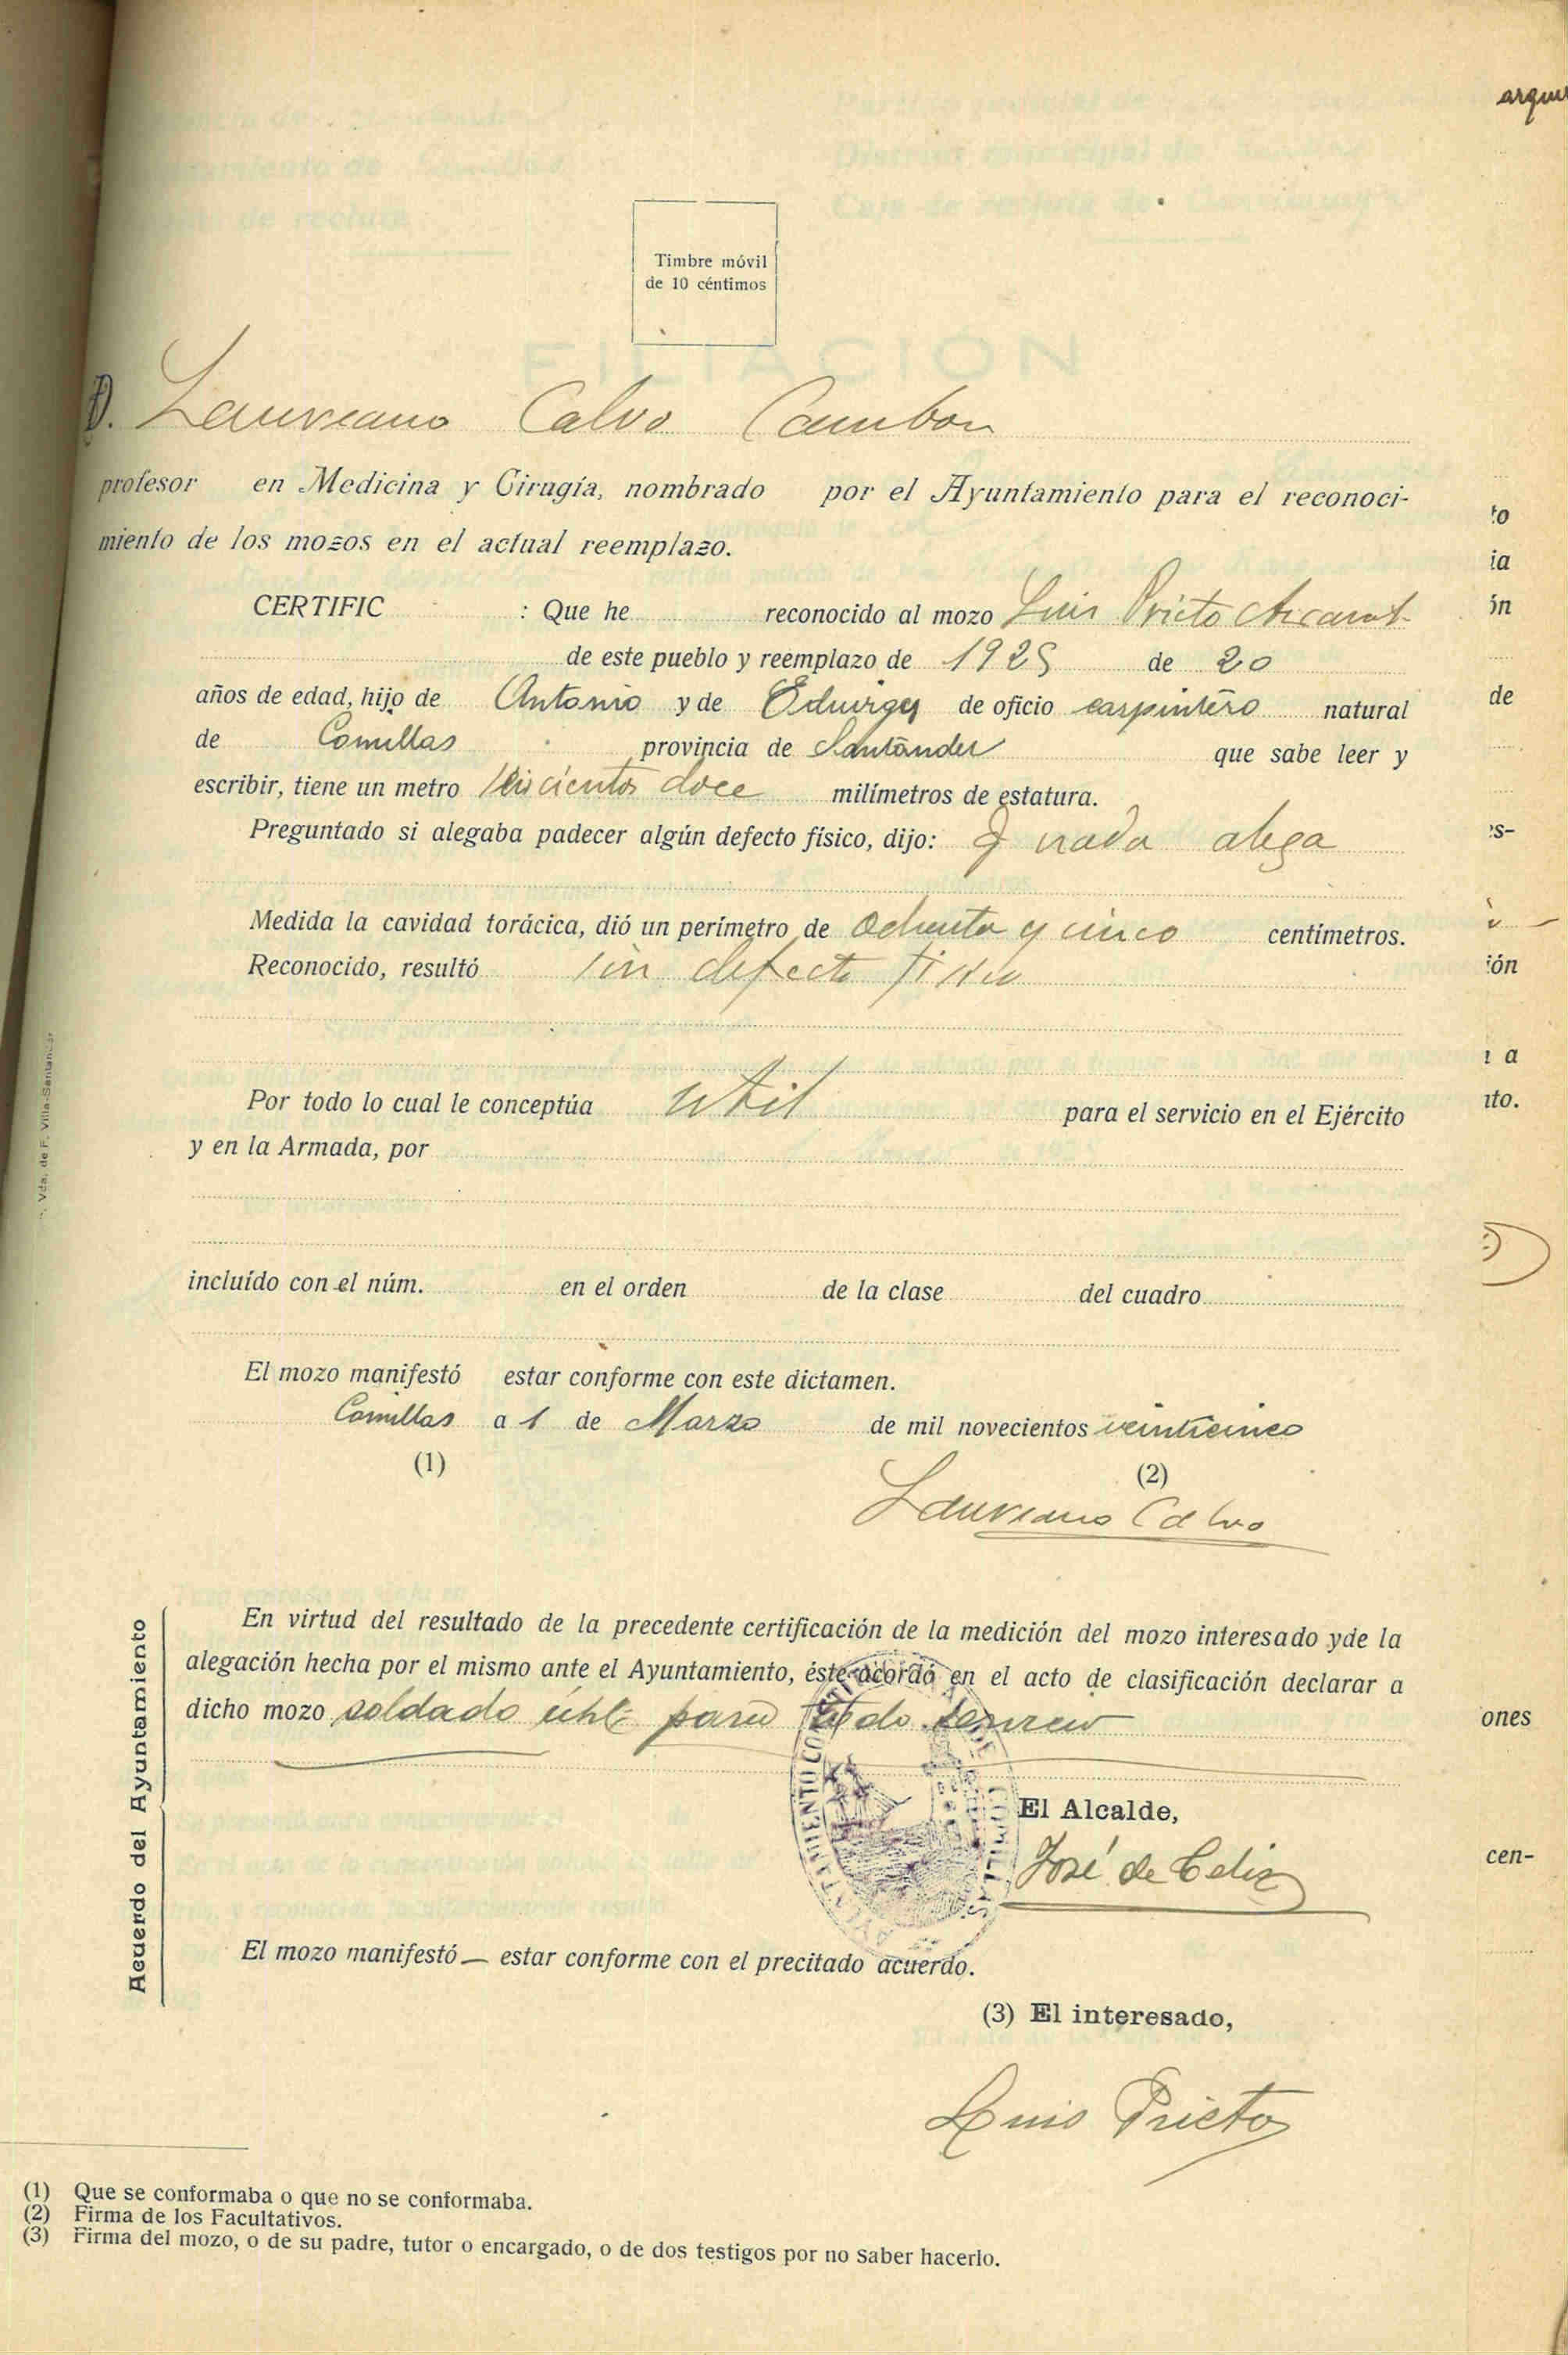 arqui
Timbre móvil
de 10 céntimos
D. Laureano Calvo Cambon
profesor en Medicina y Cirugía, nombrado por el Ayuntamiento para el reconoci-
miento de los mozos en el actual reemplazo.
CERTIFIC : Que he reconocido al mozo Luis Prieto
de este pueblo y reemplazo de 1925 de 20
años de edad, hijo de Antonio y de Eduvigis de oficio carpintero natural
de Comillas provincia de Santander que sabe leer y
escribir, tiene un metro seiscientos doce milímetros de estatura.
Preguntado si alegaba padecer algún defecto físico, dijo: q nada alega
Medida la cavidad torácica, dió un perímetro de ochenta y cinco centímetros.
Reconocido, resultó sin defecto fisico
Por todo lo cual le conceptúa util para el servicio en el Ejército
y en la Armada, por
incluído con el núm. en el orden de la clase del cuadro
El mozo manifestó estar conforme con este dictamen.
Comillas a 1 de Marzo de mil novecientos veinticinco
(1) (2)
Laureano Calvo
Acuerdo del Ayuntamiento
En virtud del resultado de la precedente certificación de la medición del mozo interesado y de la
alegación hecha por el mismo ante el Ayuntamiento, éste acordó en el acto de clasificación declarar a
dicho mozo soldado útil para todo servicio
El Alcalde,
José de Celis
El mozo manifestó — estar conforme con el precitado acuerdo.
(3) El interesado,
Luis Prieto
(1) Que se conformaba o que no se conformaba.
(2) Firma de los Facultativos.
(3) Firma del mozo, o de su padre, tutor o encargado, o de dos testigos por no saber hacerlo.
Vda. de F. Villa-Santander
to
ia
ón
de
es-
ión
a
nto.
ones
cen-